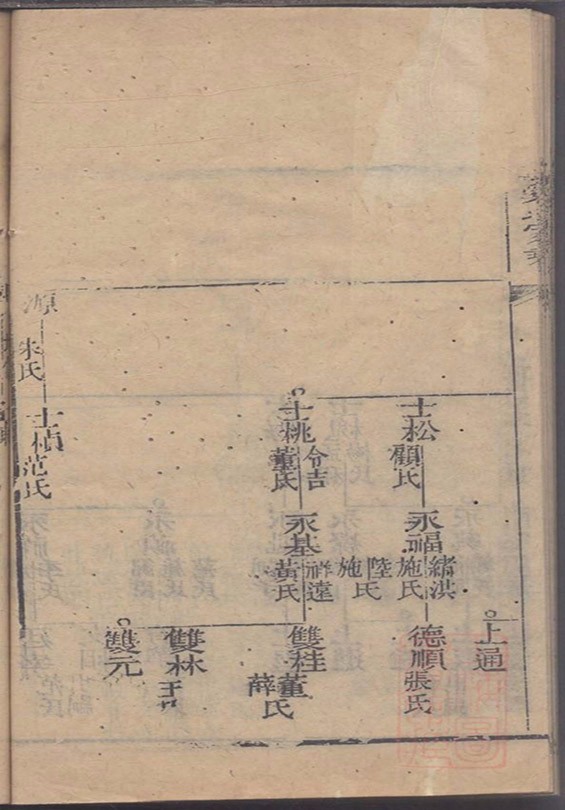 上通
士松
顧氏
永福
緒洪
施氏
陸氏
施氏
德順
張氏
士桃
令吉
董氏
永基
祥遠
黃氏
雙桂
董氏
薛氏
雙林
雙元
源
朱氏
士楨
范氏